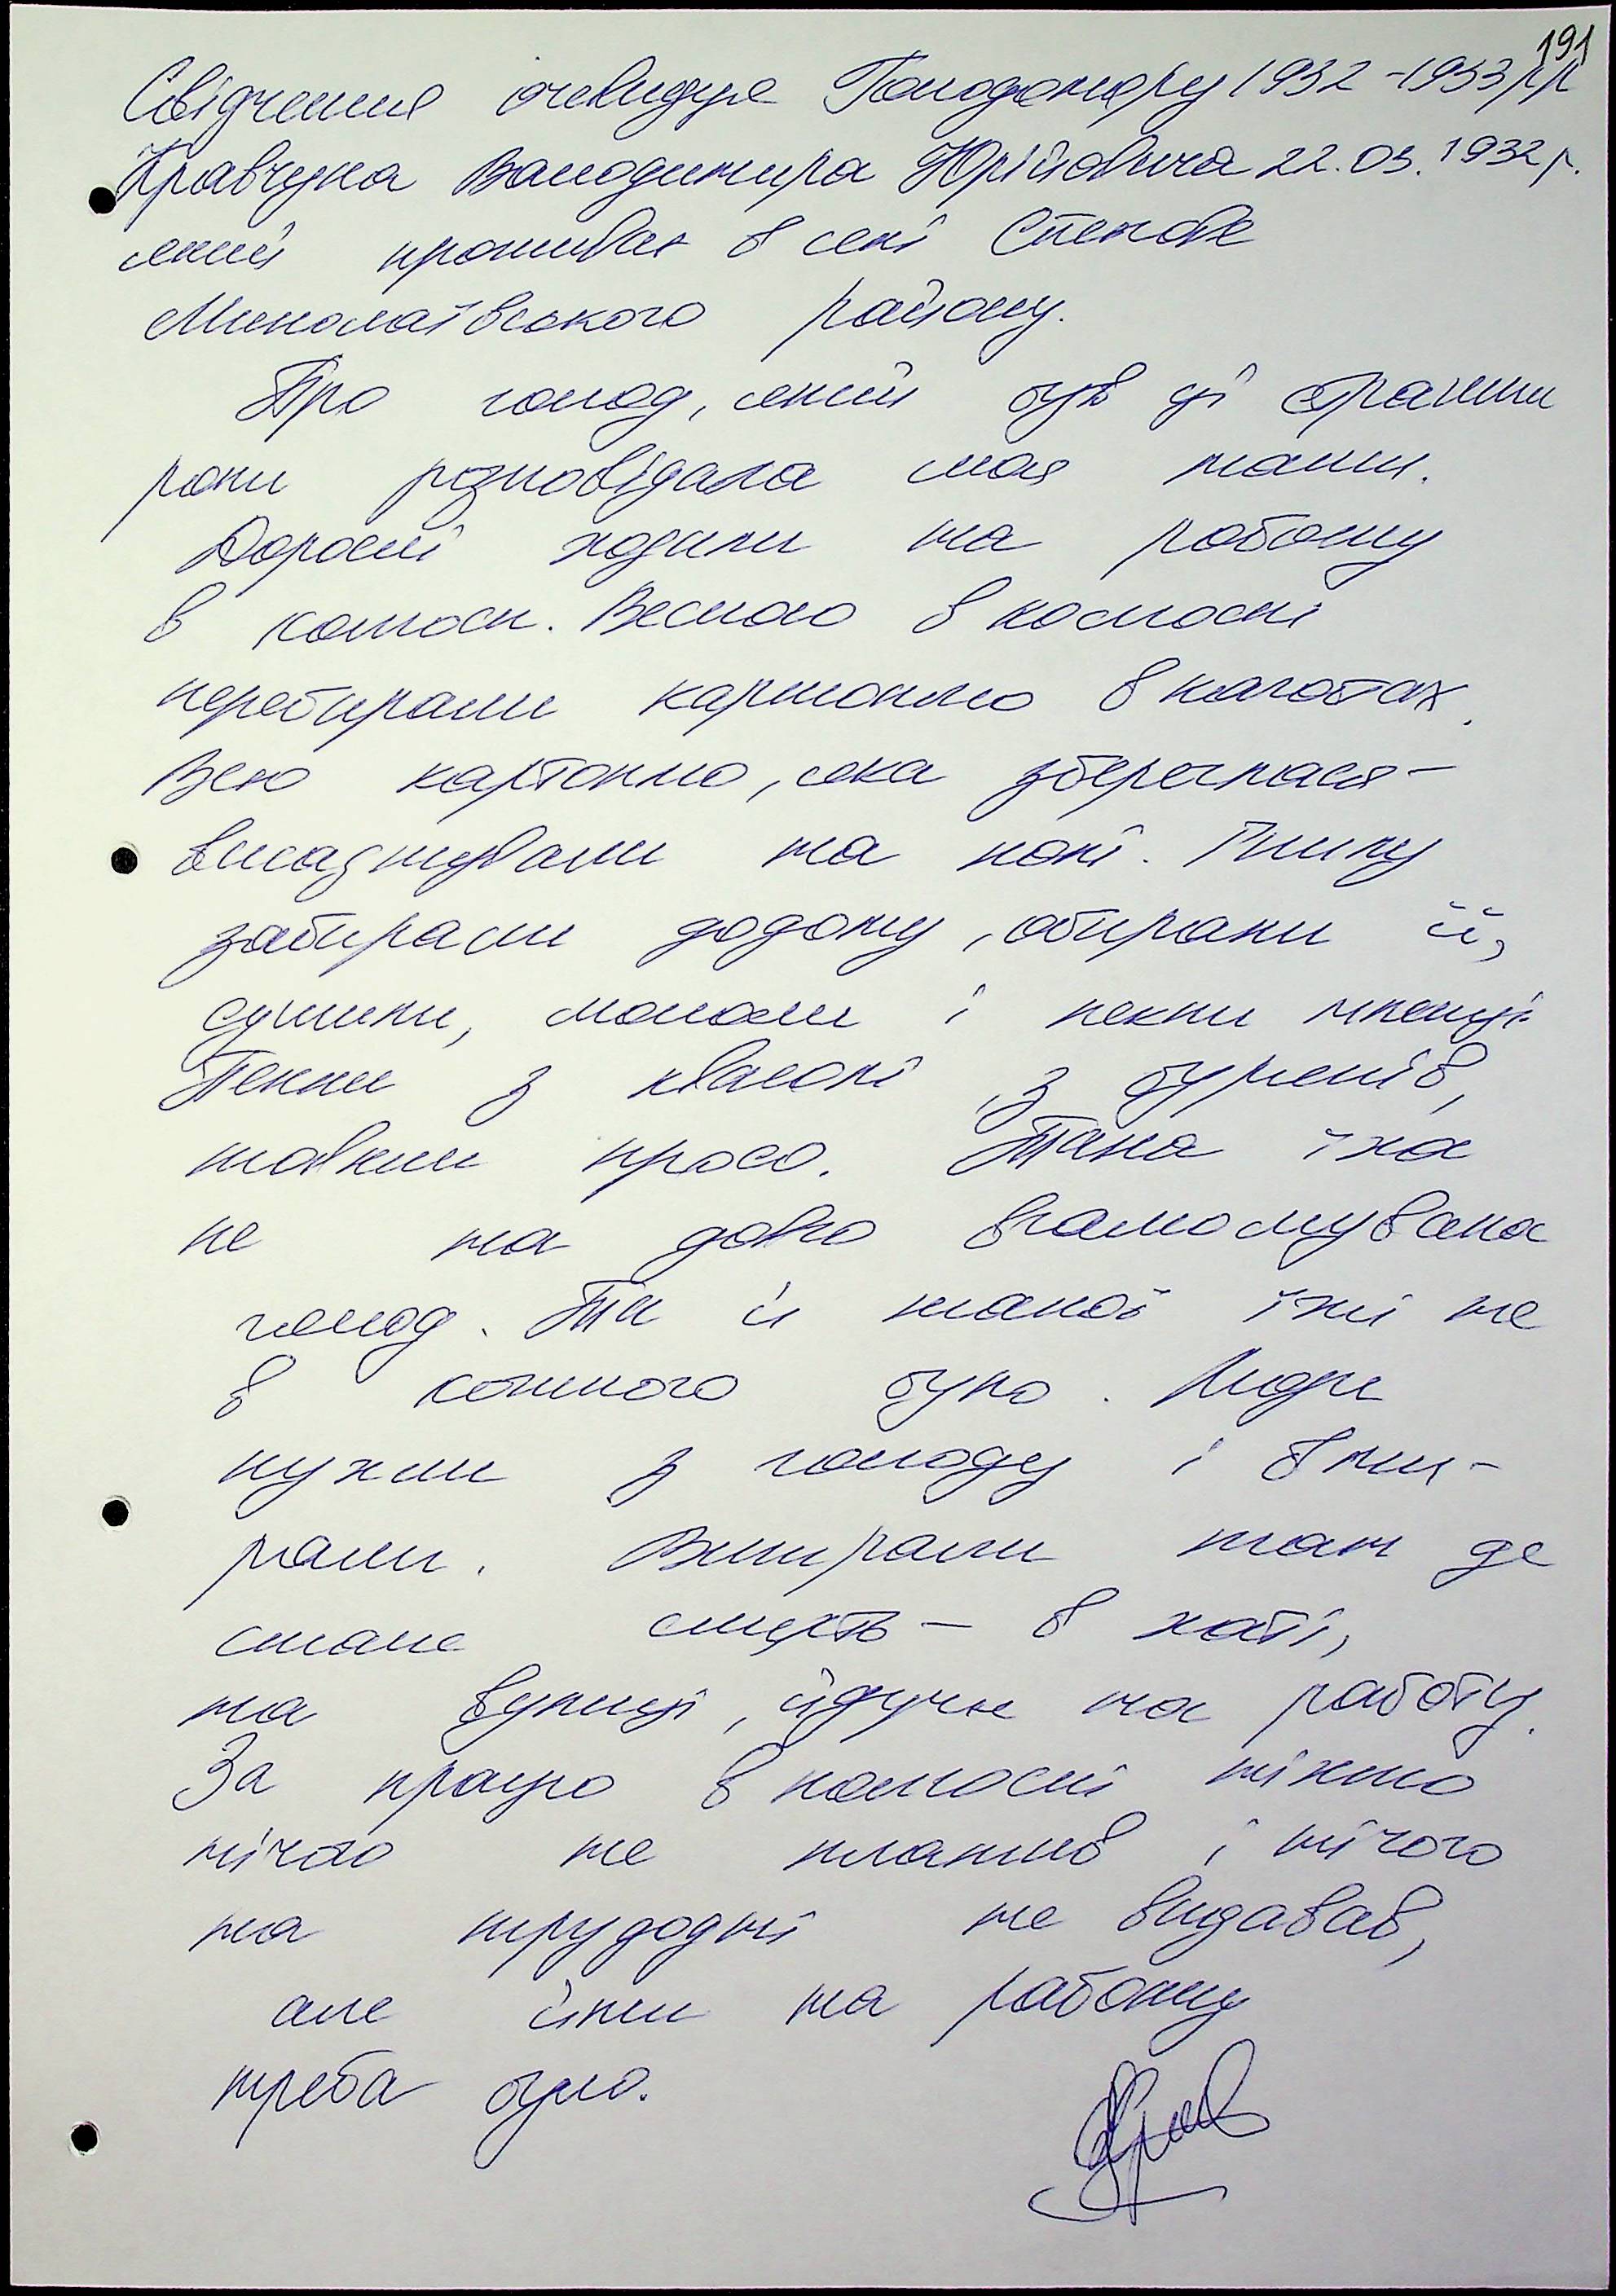 191
Свідчення очевидця Голодомору 1932-1933 рр
Кравчука Володимира Юрійовича 22.03.1932 р.
який проживає в селі Степове
Миколаївського району.
Про голод, який був ці страшні
роки розповідала моя мати.
Дорослі ходили на роботу
в колгосп. Весною в колгоспі
перебирали картоплю в кагатах.
Всю картоплю, яка збереглася -
висаджували на полі. Гнилу
забирали додому, обирали її,
сушили, мололи і пекли млинці.
Пекли з квасолі, з буряків,
товкли просо. Така їжа
не на довго втамовувала
голод. Та й такої їжі не
в кожного було. Люди
пухли з голоду і вми-
рали. Вмирали там де
стане смерть - в хаті,
на вулиці, йдучи на роботу.
За працю в колгоспі ніхто
нічого не платив і нічого
на трудодні не видавав,
але йти на роботу
треба було.